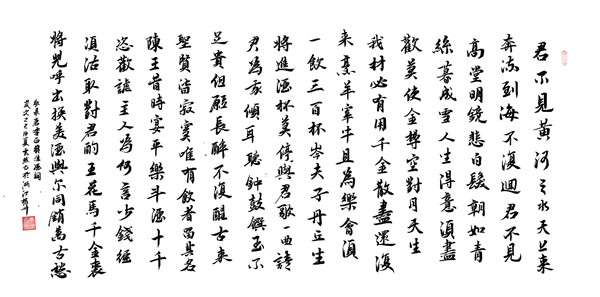 君不見黃河之水天上來
奔流到海不復迴君不見
高堂明鏡悲白髮朝如青
絲暮成雪人生得意須盡
歡莫使金尊空對月天生
我材必有用千金散盡還復
來烹羊宰牛且為樂會須
一飲三百杯岑夫子丹丘生
將進酒杯莫停與君歌一曲請
君為我傾耳聽鐘鼓饌玉不
足貴但願長醉不復醒古來
聖賢皆寂寞唯有飲者留其名
陳王昔時宴平樂斗酒十千
恣歡謔主人為何言少錢徑
須沽取對君酌五花馬千金裘
將兒呼出換美酒與爾同銷萬古愁
唐李白將進酒詞
歲次